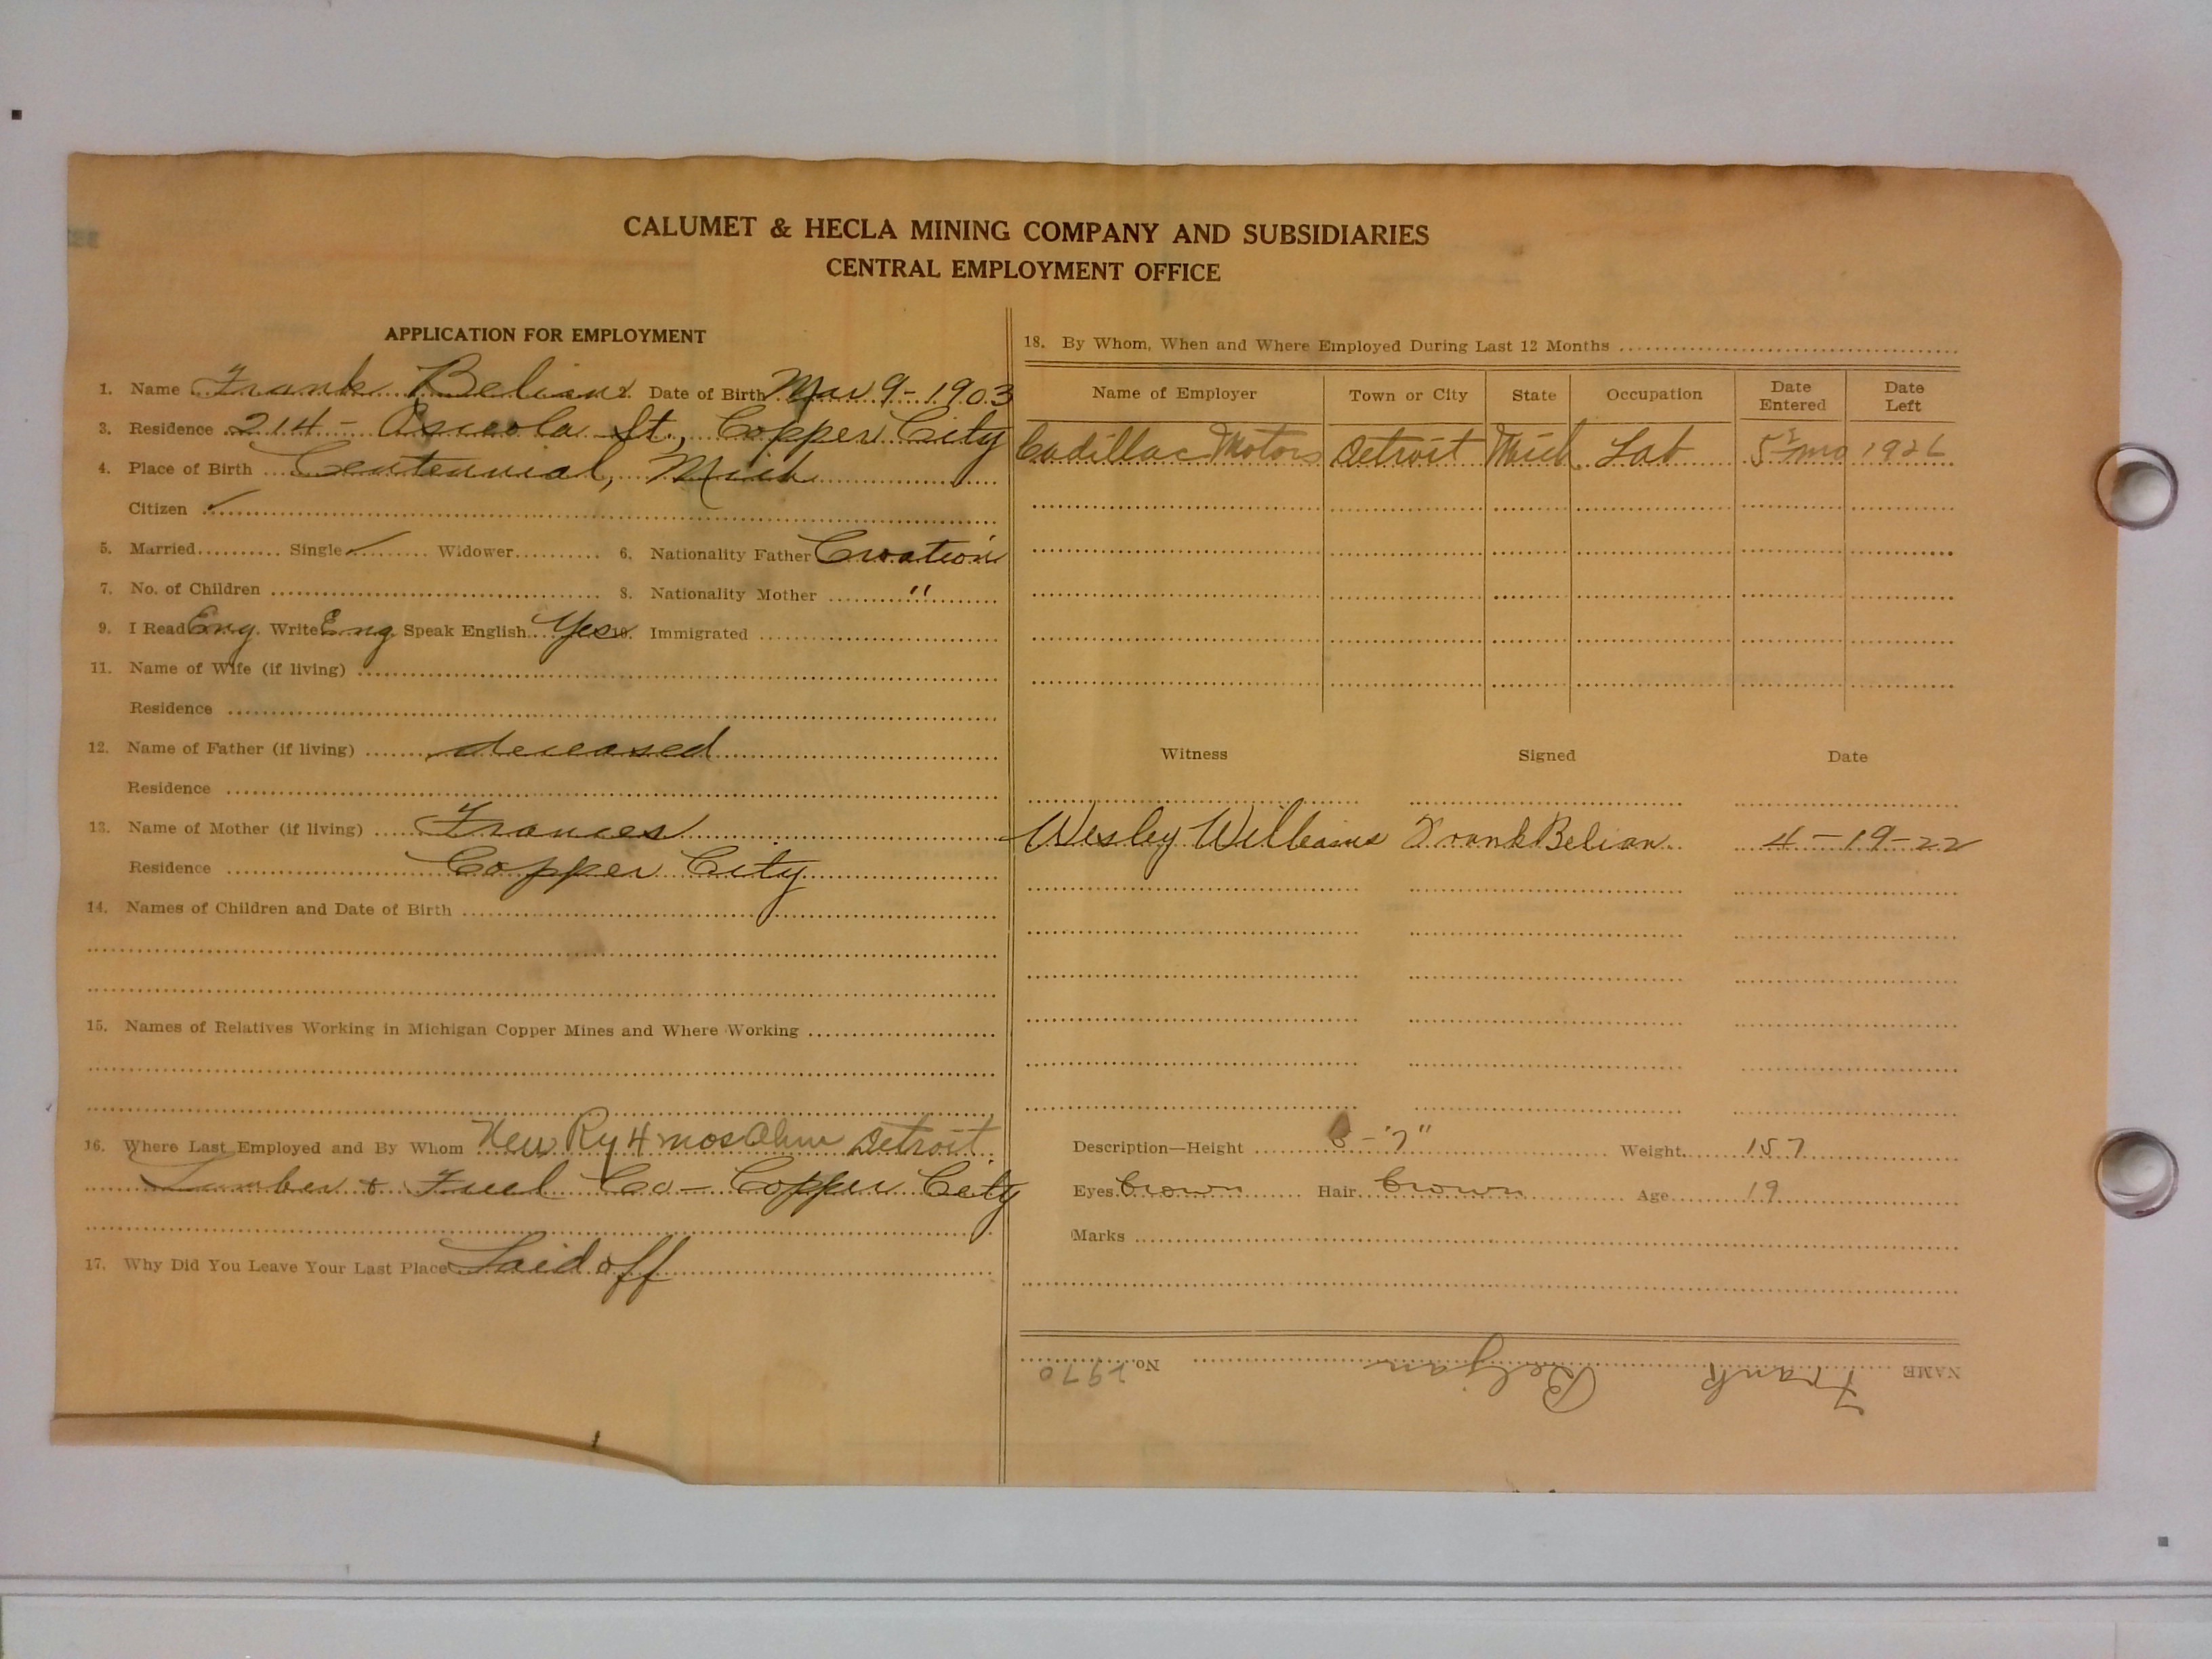 CALUMET & HECLA MINING COMPANY AND SUBSIDIARIES
CENTRAL EMPLOYMENT OFFICE
APPLICATION FOR EMPLOYMENT
1. Name Frank Belian Date of Birth Mar 9-1903
3. Residence 214 - Osceola St., Copper City
4. Place of Birth Centennial, Mich
Citizen ✓
5. Married Single ✓ Widower 6. Nationality Father Croation
7. No. of Children 8. Nationality Mother "
9. I Read Eng. Write Eng. Speak English Yes 10. Immigrated
11. Name of Wife (if living)
Residence
12. Name of Father (if living) deceased
Residence
13. Name of Mother (if living) Frances
Residence Copper City
14. Names of Children and Date of Birth
15. Names of Relatives Working in Michigan Copper Mines and Where Working
16. Where Last Employed and By Whom New Ry 4 mos Detroit
Lumber & Fuel Co - Copper City
17. Why Did You Leave Your Last Place Laid off
18. By Whom, When and Where Employed During Last 12 Months
Name of Employer Town or City State Occupation Date Entered Date Left
Cadillac Motors Detroit Mich. Lab 1926
Witness Signed Date
Wesley Williams Frank Belian 4-19-22
Description—Height 5-7" Weight 157
Eyes brown Hair brown Age 19
Marks
NAME Frank Beljan No. 2970